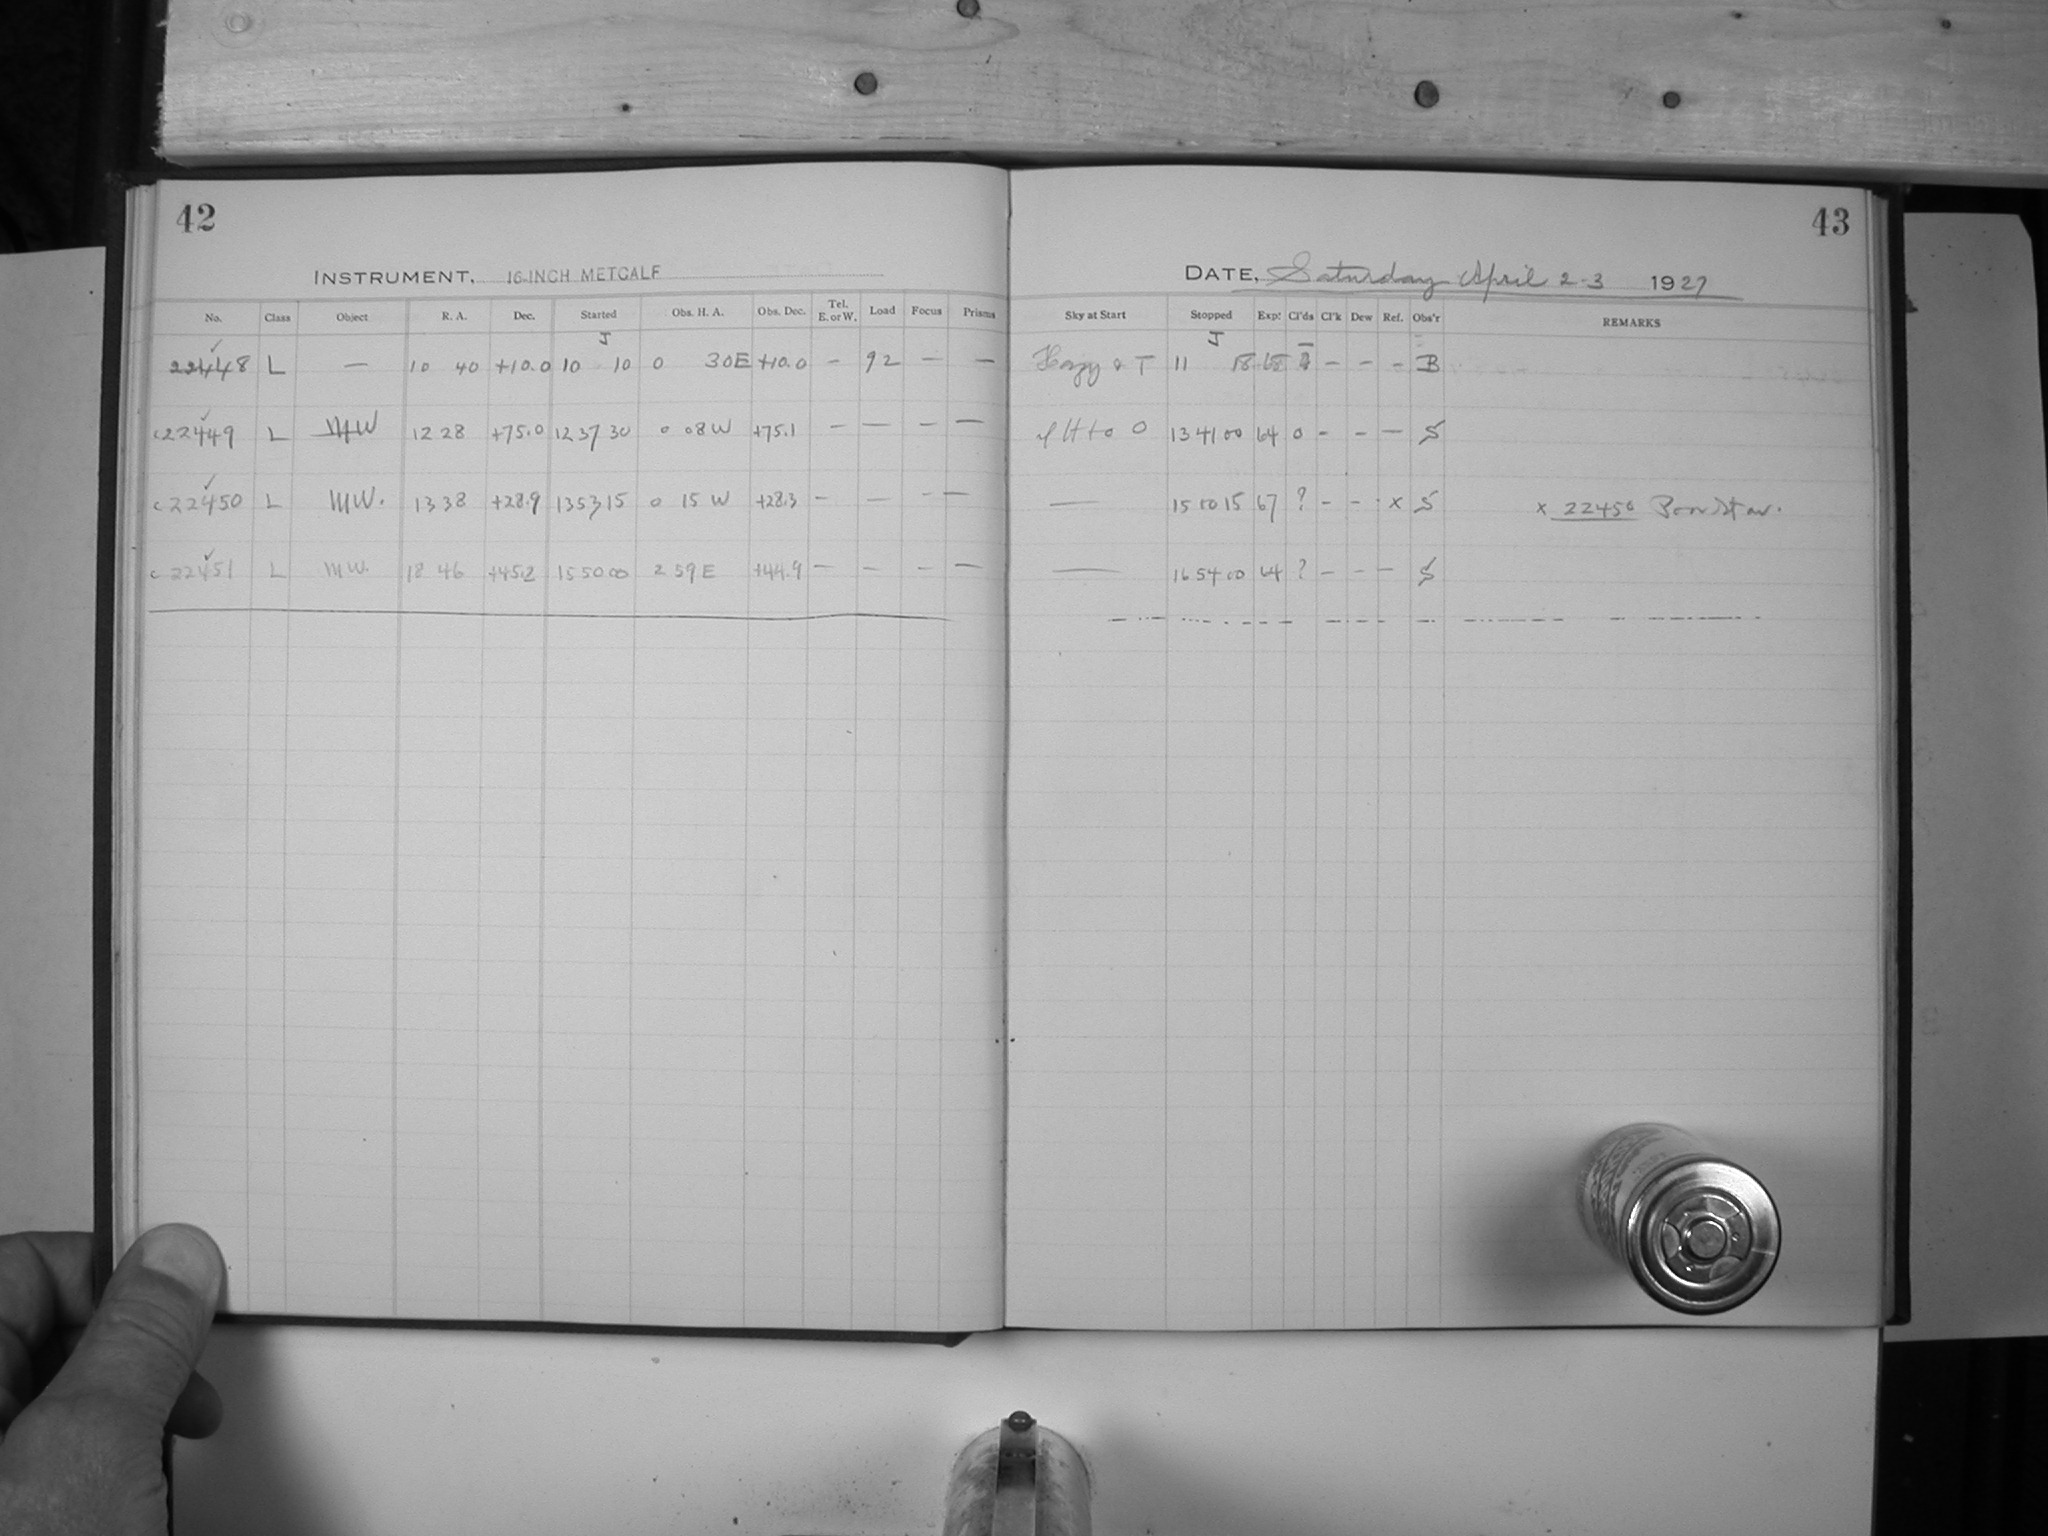 42
INSTRUMENT, 16-INCH METCALF
No. Class Object R. A. Dec. Started Obs. H. A. Obs. Dec. Tel. E. or W. Load Focus Prisms
J
22448 L — 10 40 +10.0 10 10 0 30E +10.0 - 92 — —
c22449 L MW 12 28 +75.0 12 37 30 0 08W +75.1 — — — —
c22450 L MW. 13 38 +28.9 13 53 15 0 15 W +28.3 — — - —
c22451 L MW. 18 46 +45.2 15 50 00 2 59 E +44.9 — — — —
43
DATE, Saturday April 2-3 1927
Sky at Start Stopped Exp: Cl'ds Cl'k Dew Ref. Obs'r REMARKS
J
Hazy & T 11 18 68 - - - B
H to 0 13 41 00 64 0 - - — S
— 15 00 15 67 ? - - x S x 22450 Poor Star.
— 16 54 00 64 ? - - - S